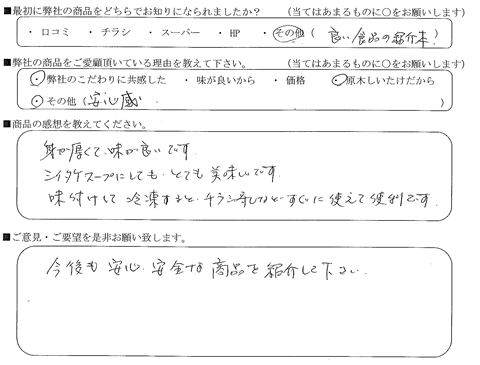 ■最初に弊社の商品をどちらでお知りになられましたか？　(当てはあまるものに〇をお願いします)
・口コミ　・チラシ　・スーパー　・HP　・その他（良い食品の紹介本）
■弊社の商品をご愛顧頂いている理由を教えて下さい。　(当てはあまるものに〇をお願いします)
・弊社のこだわりに共感した　・味が良いから　・価格　・原木しいたけだから
・その他（安心感　）
■商品の感想を教えてください。
身が厚くて、味が良いです。
シイタケスープにしても、とても美味しいです。
味付けして冷凍すると、チラシ寿しなどすぐに使えて便利です。
■ご意見・ご要望を是非お願い致します。
今後も安心、安全な商品を紹介して下さい。